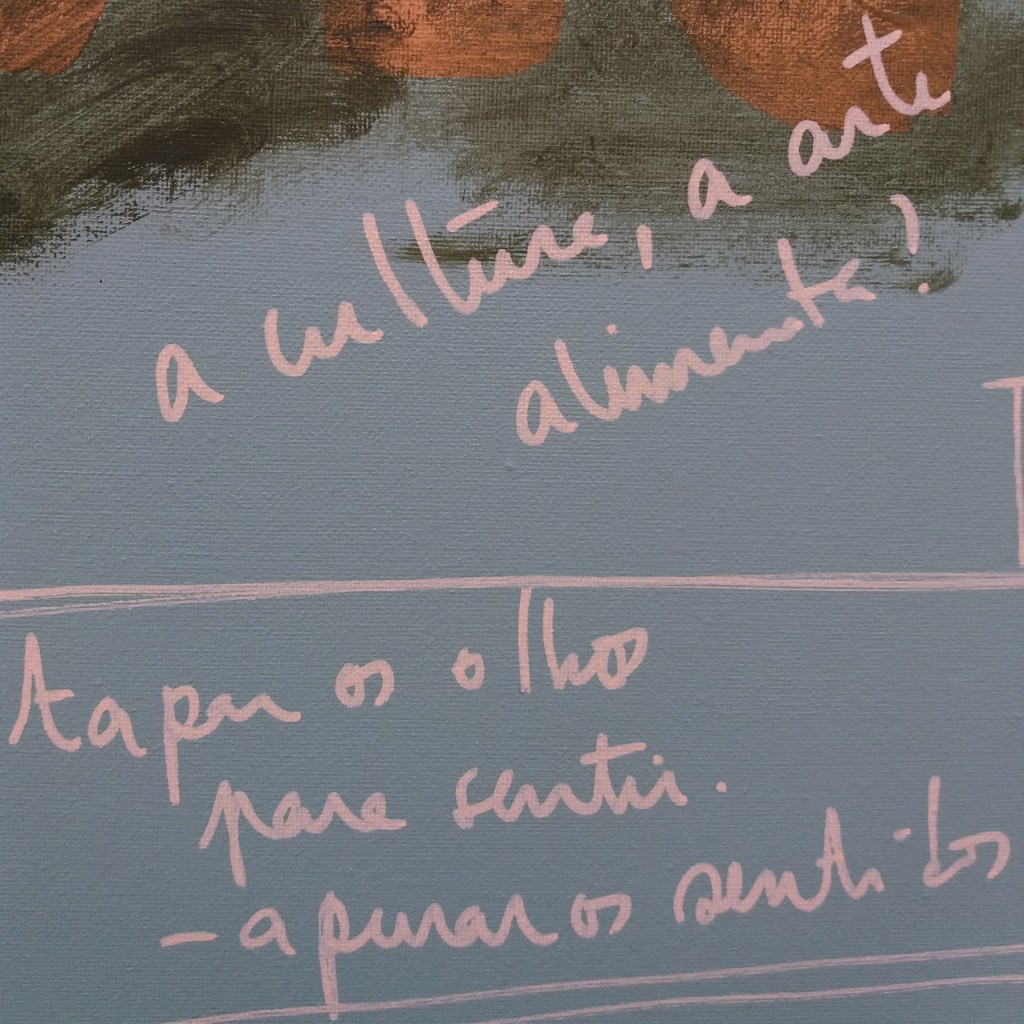 a cultura, a arte
alimenta!
tapar os olhos
para sentir.
- apurar os sentidos